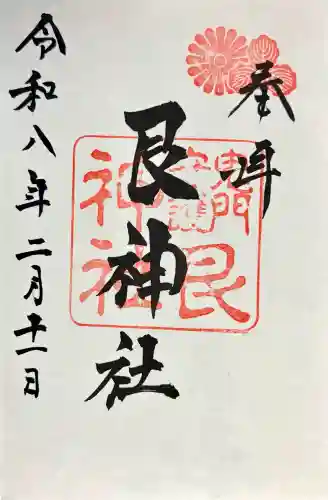 奉拝
艮神社
令和八年二月十一日
艮
神社